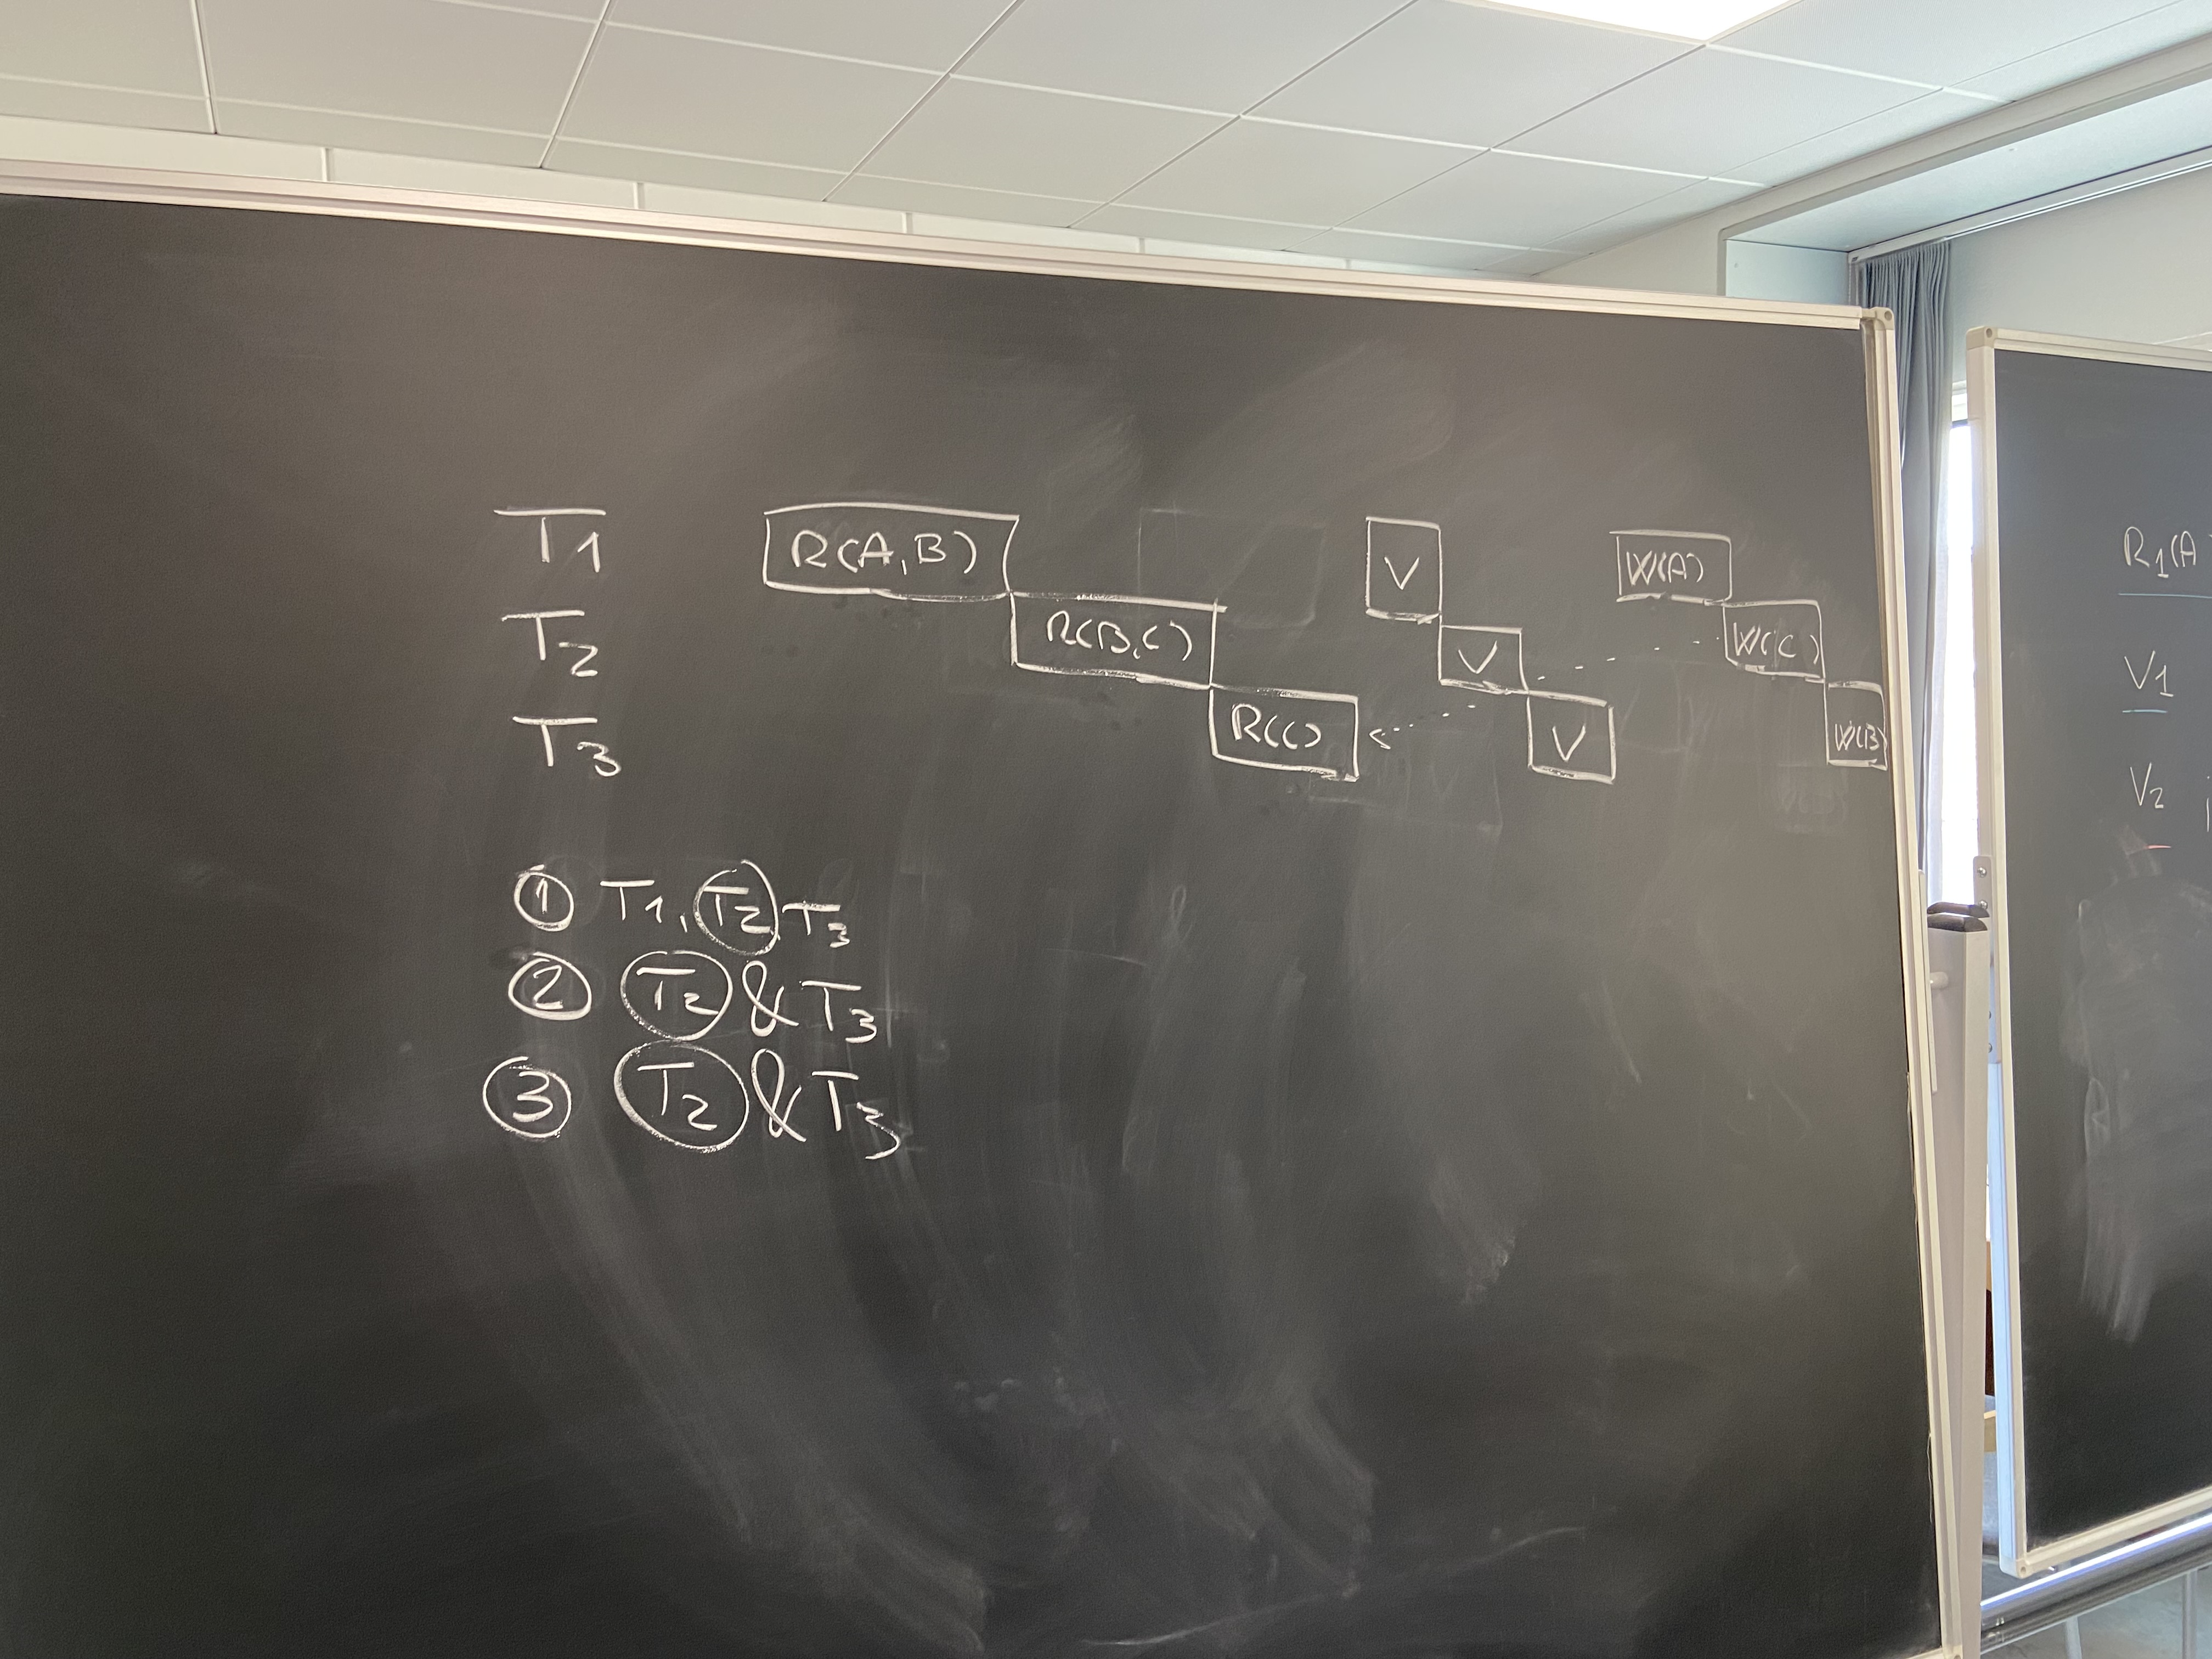 T1 R(A,B) V W(A)
T2 R(B,C) V W(C)
T3 R(C) V W(B)
① T1, T2, T3
② T2 & T3
③ T2 & T3
R1(A
V1
V2